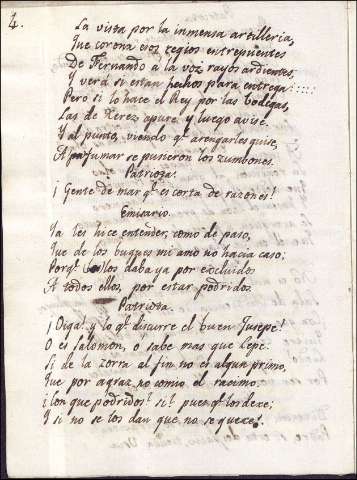 4.
La vista por la inmensa artilleria,
Que corona esos regios entrepuentes
De Fernando a la voz rayos ardientes,
Y verá si estan hechos para entrega:::::
Pero si lo hace el Rey por las bodegas,
Las de Xerez apure, y luego avise.
Y al punto, viendo q.e arengarles quise,
A fumar se pusieron los zumbones.
Patriota.
¡Gente de mar q.e es corta de razones!
Emisario.
Ya les hice entender, como de paso,
Que de los buques mi amo no hacia caso;
Porq.e los daba ya por excluidos
A todos ellos, por estar podridos.
Patriota.
¡Oiga! y lo q.e discurre el buen Jusepe!
O es Salomon, o sabe mas que Lepe.
Si de la zorra al fin no es algun primo,
Que por agraz no comio el racimo.
¿Con que podridos? si? pues q.e los dexe;
Y si no se los dan que no se quexe!